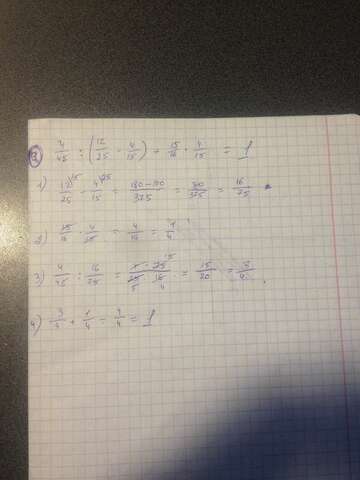 8) 4/45 : (12/25 - 4/15) + 15/16 · 4/15 = 1
1) 12/25 - 4/15 = 180-100/375 = 80/375 = 16/75
2) 15/16 · 4/15 = 4/16 = 1/4
3) 4/45 : 16/75 = 15/20 = 3/4
4) 3/4 + 1/4 = 4/4 = 1